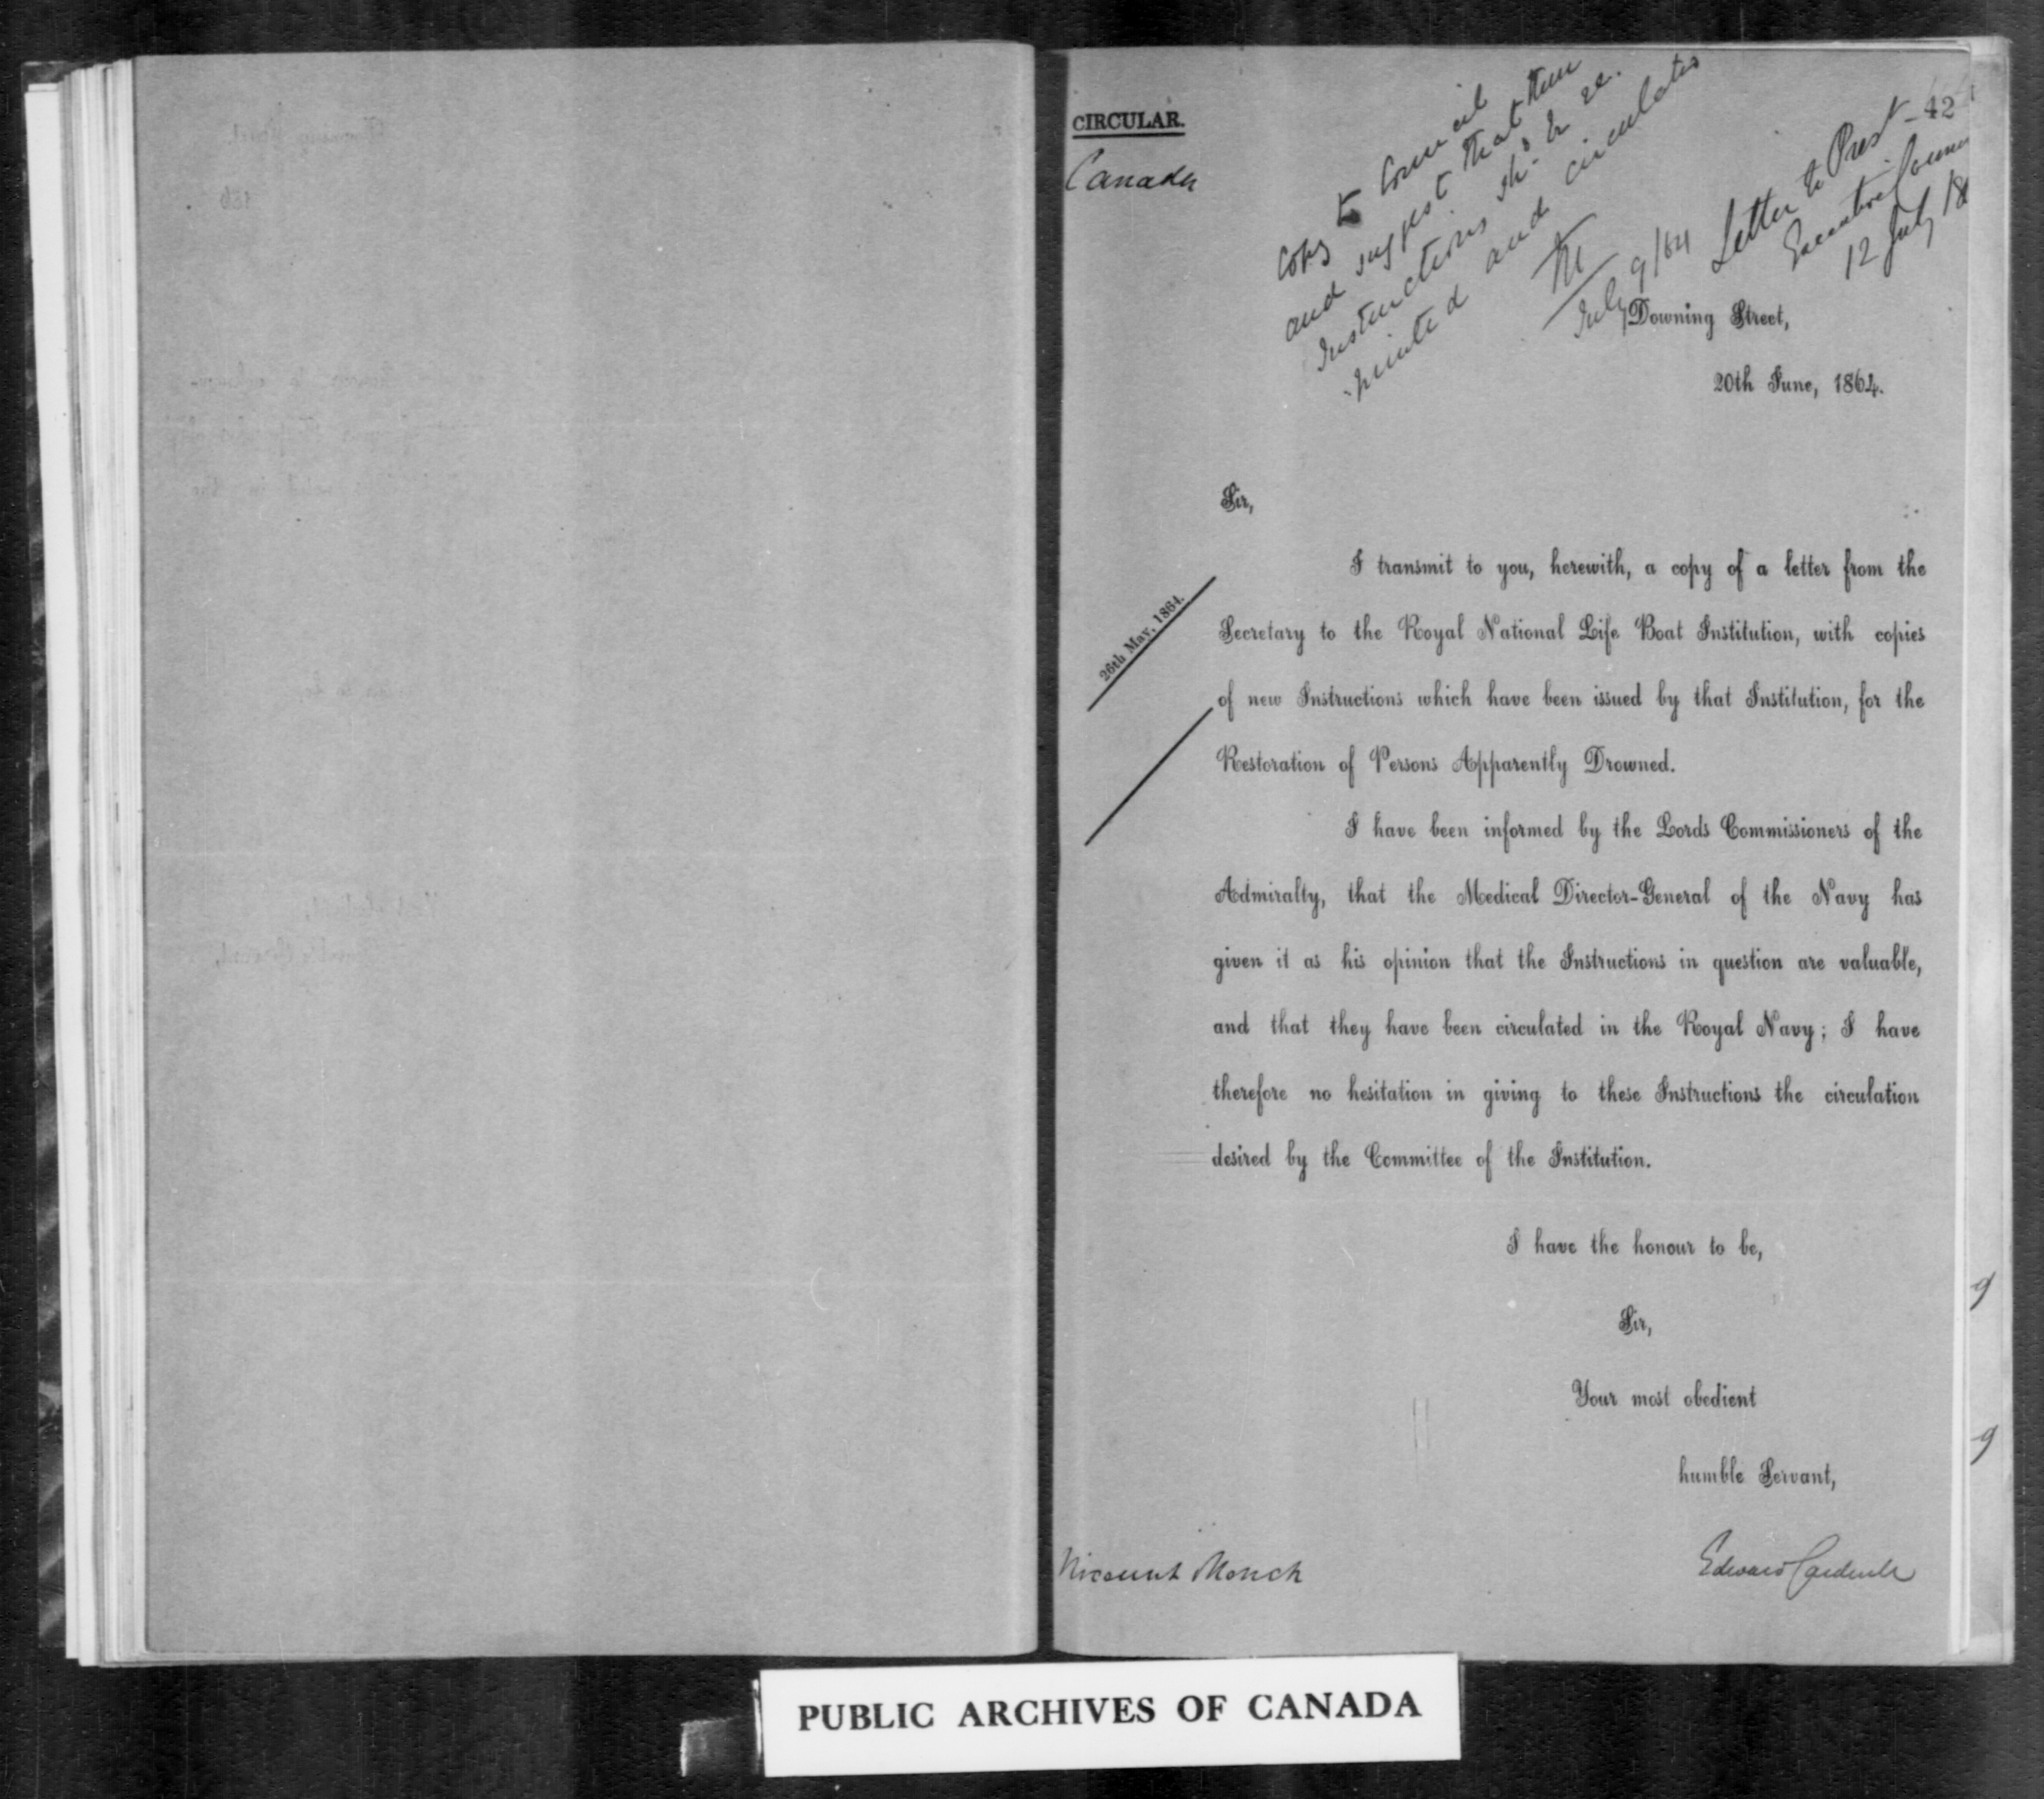 CIRCULAR.
Canada
42
Copy to Council
and suggest that these
Instructions shd. be re.
printed and circulated
M
July 9/64
Letter to Prest
Executive Council
12 July 18
Downing Street,
20th June, 1864.
Sir,
I transmit to you, herewith, a copy of a letter from the
26th May, 1864.
Secretary to the Royal National Life Boat Institution, with copies
of new Instructions which have been issued by that Institution, for the
Restoration of Persons Apparently Drowned.
I have been informed by the Lords Commissioners of the
Admiralty, that the Medical Director-General of the Navy has
given it as his opinion that the Instructions in question are valuable,
and that they have been circulated in the Royal Navy; I have
therefore no hesitation in giving to these Instructions the circulation
desired by the Committee of the Institution.
I have the honour to be,
Sir,
Your most obedient
humble Servant,
Viscount Monck
Edward Cardwell
PUBLIC ARCHIVES OF CANADA